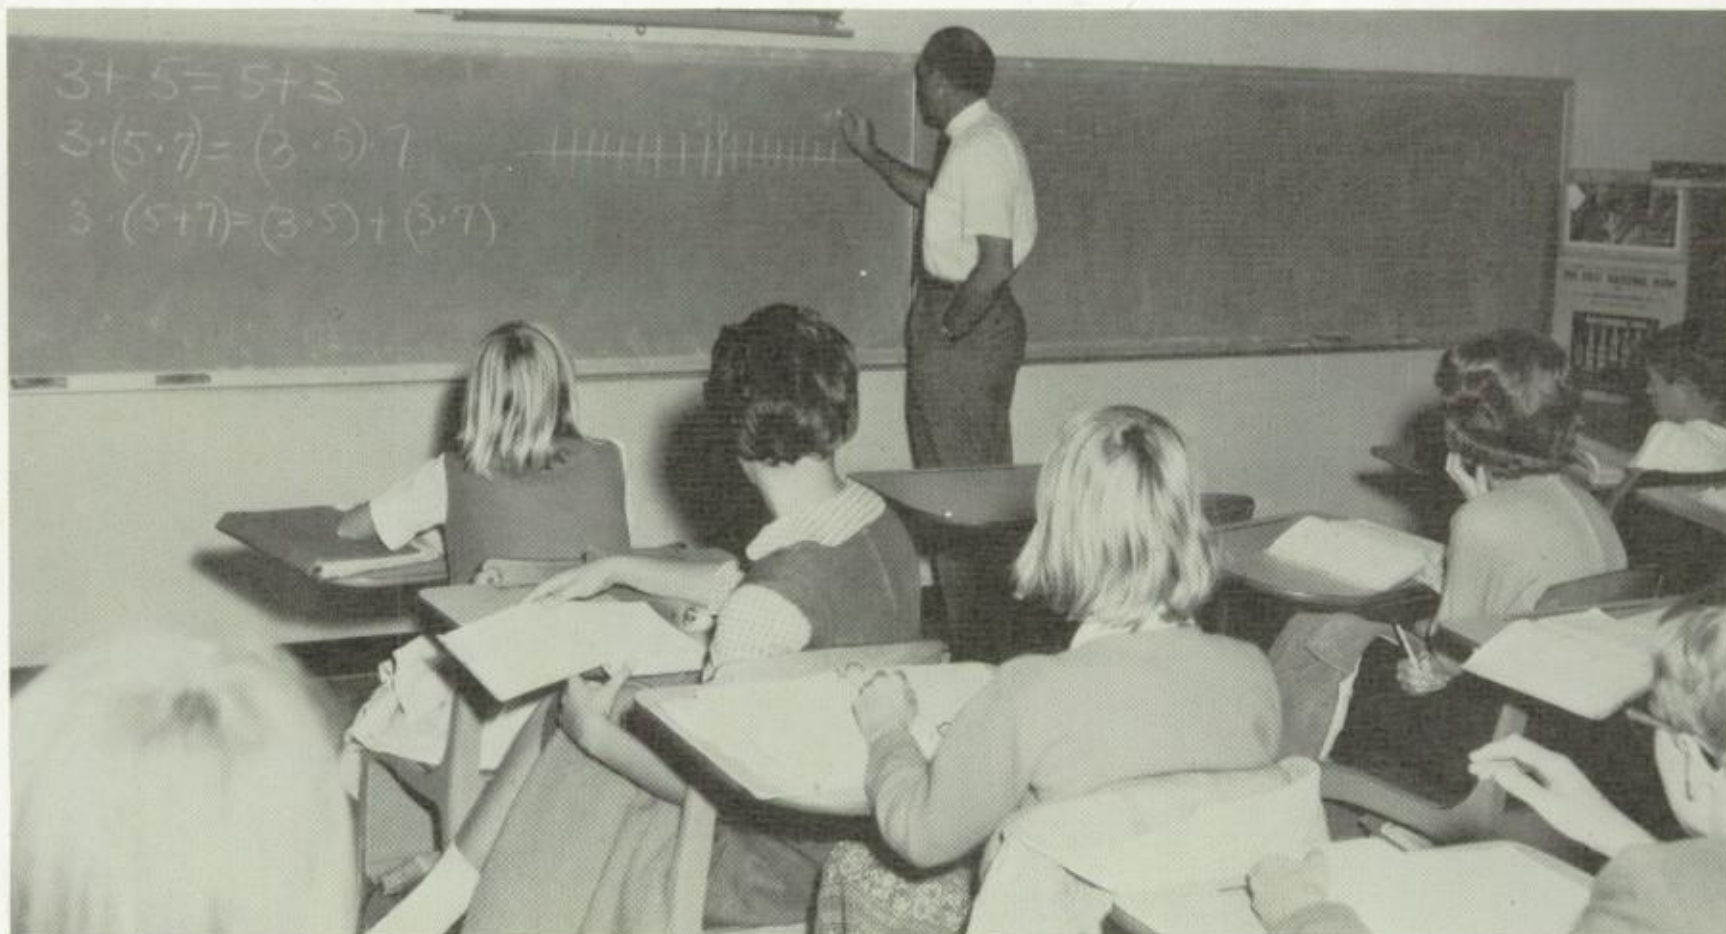 3+5=5+3
3·(5·7)=(3·5)·7
3·(5+7)=(3·5)+(3·7)